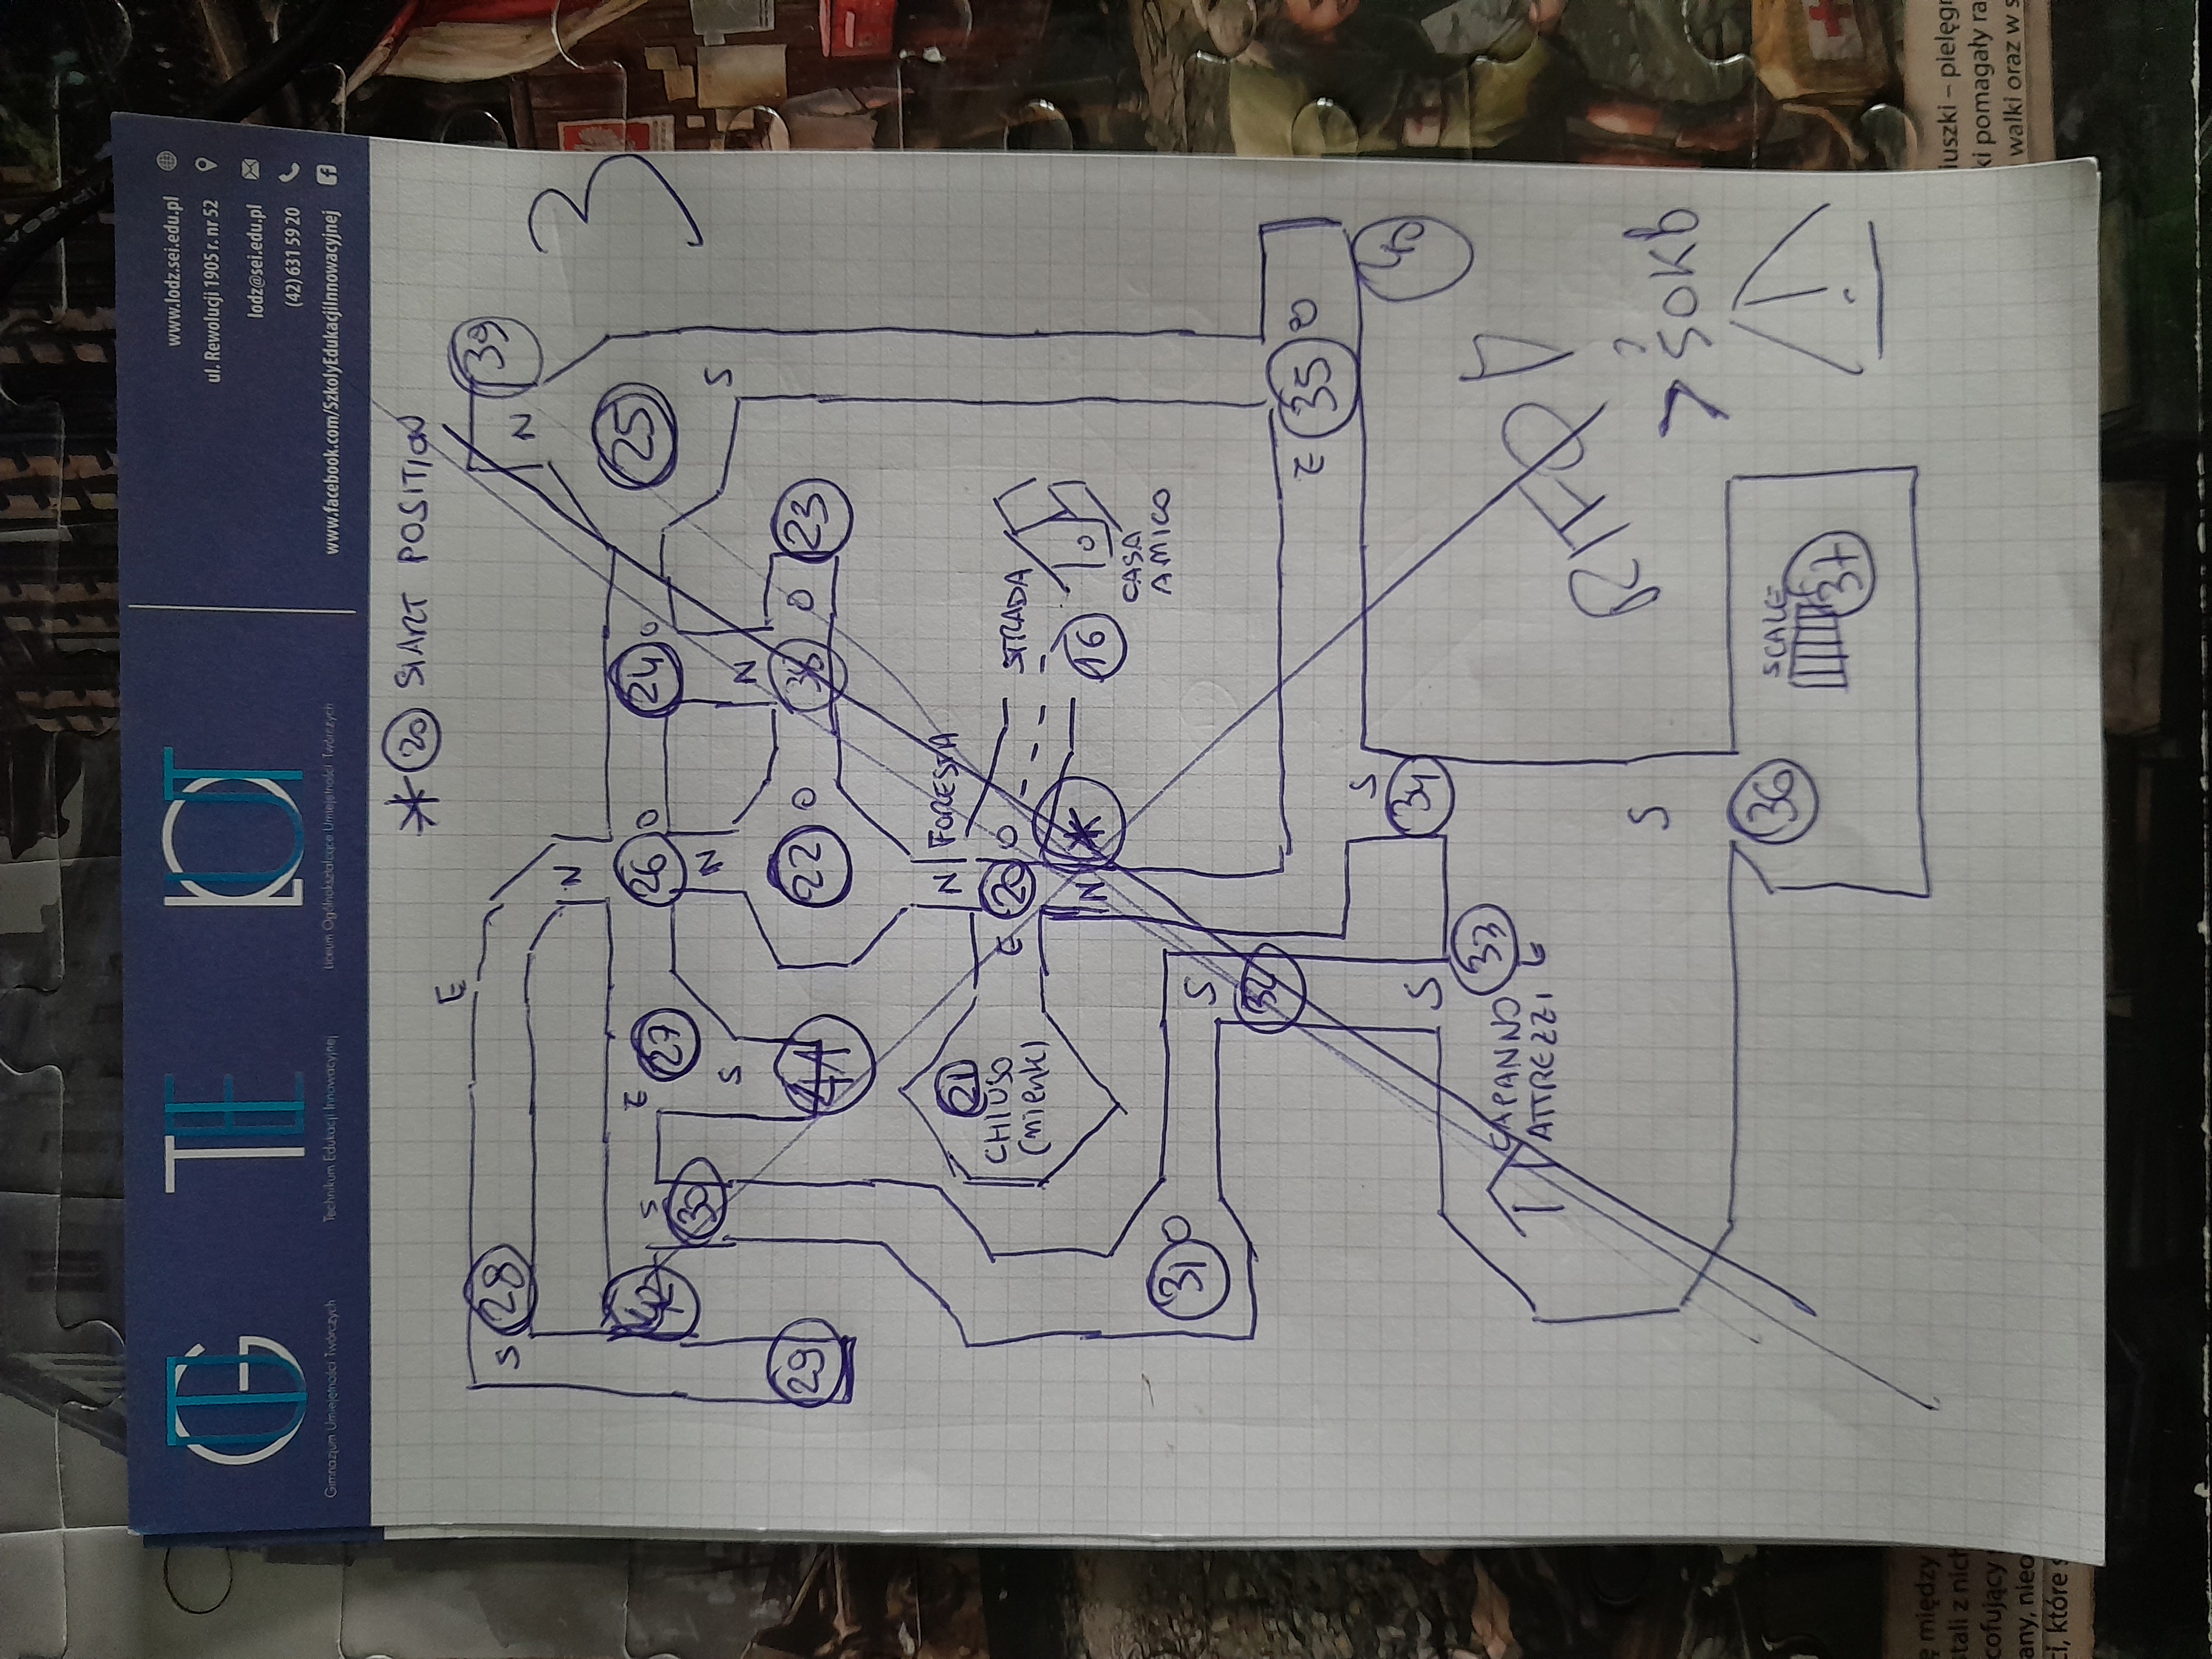 GUT
TEE
LOUT
Gimnazjum Umiejętności Twórczych
Technikum Edukacji Innowacyjnej
Liceum Ogólnokształcące Umiejętności Twórczych
www.lodz.sei.edu.pl
ul. Rewolucji 1905 r. nr 52
lodz@sei.edu.pl
(42) 631 59 20
www.facebook.com/SzkolyEdukacjiInnowacyjnej
* 20 START POSITION
E
S 28
39
N
N
3
42
S
E
27
26 O
24 O
25
30
N
S
S
N
29
41
22 O
38 O
23
21
CHIUSO
(nienk)
N FORESTA
E 20 O
STRADA
N *
16
CASA
AMICO
31 O
S
32
E 35 O
S
34
40
S
33
CAPANNO
ATTREZZI E
RIFO
S
? > 50KB
36
SCALE
37
!
ę między
stali z nich
cofujący
any, nieo
ci, które s
iuszki – pielęgn
ki pomagały ra
walki oraz w s